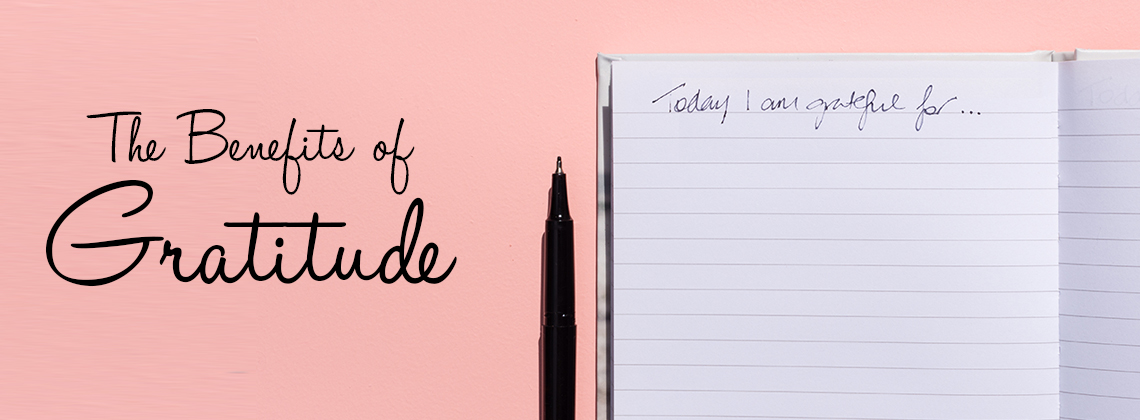 The Benefits of
Gratitude
Today I am grateful for...